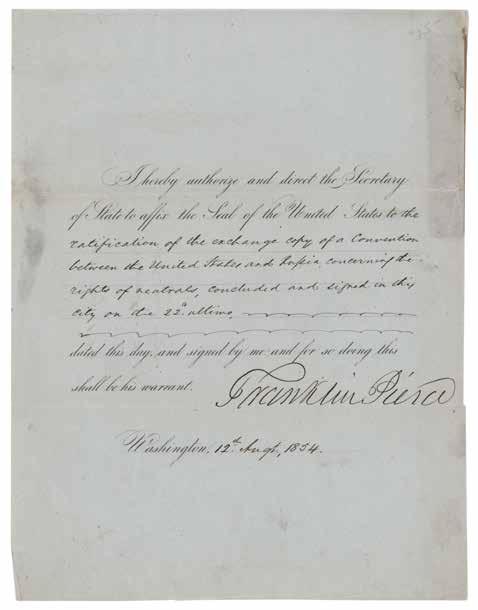 I hereby authorize and direct the Secretary
of State to affix the Seal of the United States to the
ratification of the exchange copy of a Convention
between the United States and Russia, concerning the
rights of neutrals, concluded and signed in this
city on the 22d. ultimo,
dated this day, and signed by me and for so doing this
shall be his warrant.
Franklin Pierce
Washington, 12th. Augt, 1854.